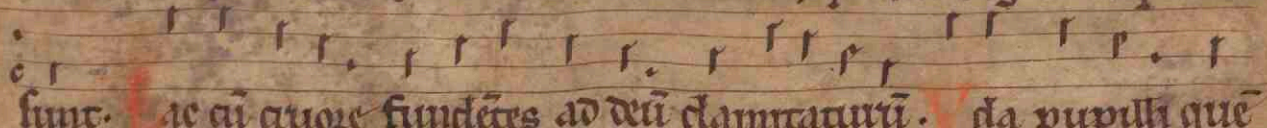 sunt. ac cū cruore fundētes ad deū clamitaturū. cla pupilli quē